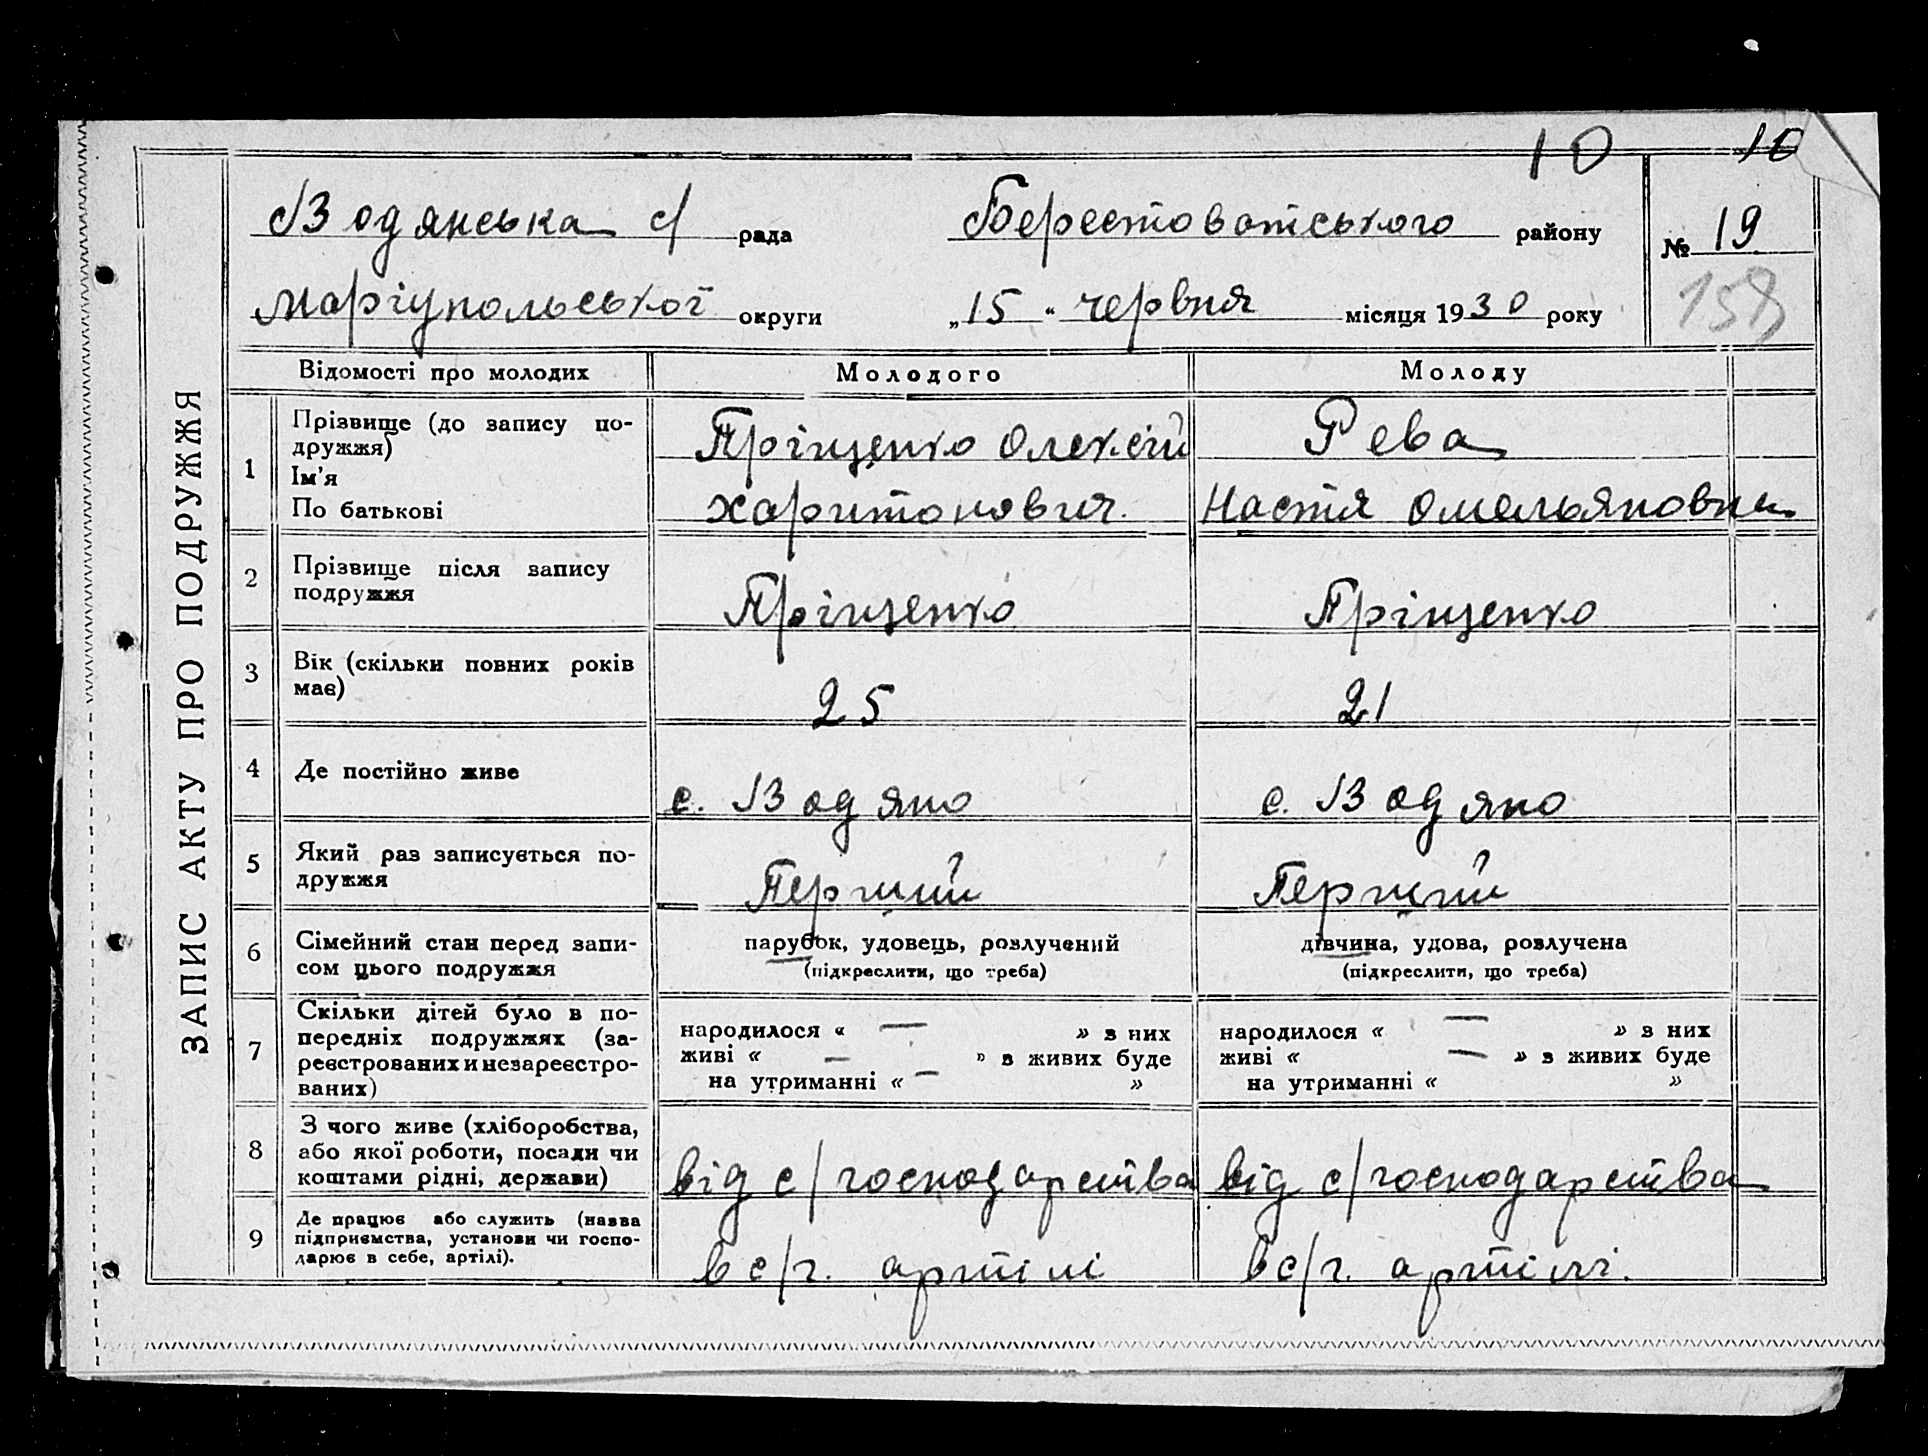 10 10
Водянська с/ рада Берестоватського району № 19
Маріупольської округи „15“ червня місяця 1930 року
ЗАПИС АКТУ ПРО ПОДРУЖЖЯ
Відомості про молодих Молодого Молоду
1 Прізвище (до запису по-
дружжя)
Ім'я
По батькові
Пріщенко Олексій
Харитонович.
Рева
Настя Омельяновна
2 Прізвище після запису
подружжя
Пріщенко Пріщенко
3 Вік (скільки повних років
має)
25 21
4 Де постійно живе с. Водяно с. Водяно
5 Який раз записується по-
дружжя
Перший Перший
6 Сімейний стан перед запи-
сом цього подружжя
парубок, удовець, розлучений
(підкреслити, що треба)
дівчина, удова, розлучена
(підкреслити, що треба)
7 Скільки дітей було в по-
передніх подружжях (за-
реєстрованих и незареєстро-
ваних)
народилося « — » з них
живі « — » з живих буде
на утриманні « — »
народилося « — » з них
живі « — » з живих буде
на утриманні « »
8 З чого живе (хліборобства,
або якої роботи, посади чи
коштами рідні, держави)
від с/господарства від с/господарства
9 Де працює або служить (назва
підприємства, установи чи госпо-
дарює в себе, артілі).
в с/г. артілі в с/г. артілі.